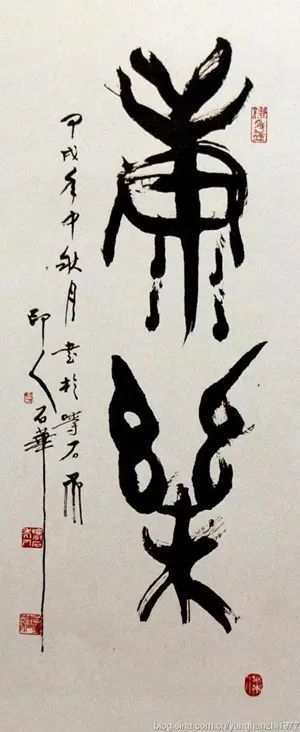 康樂
甲戌年中秋月書於石齋
印人石華
blog.sina.com.cn/yanghanzhi1977